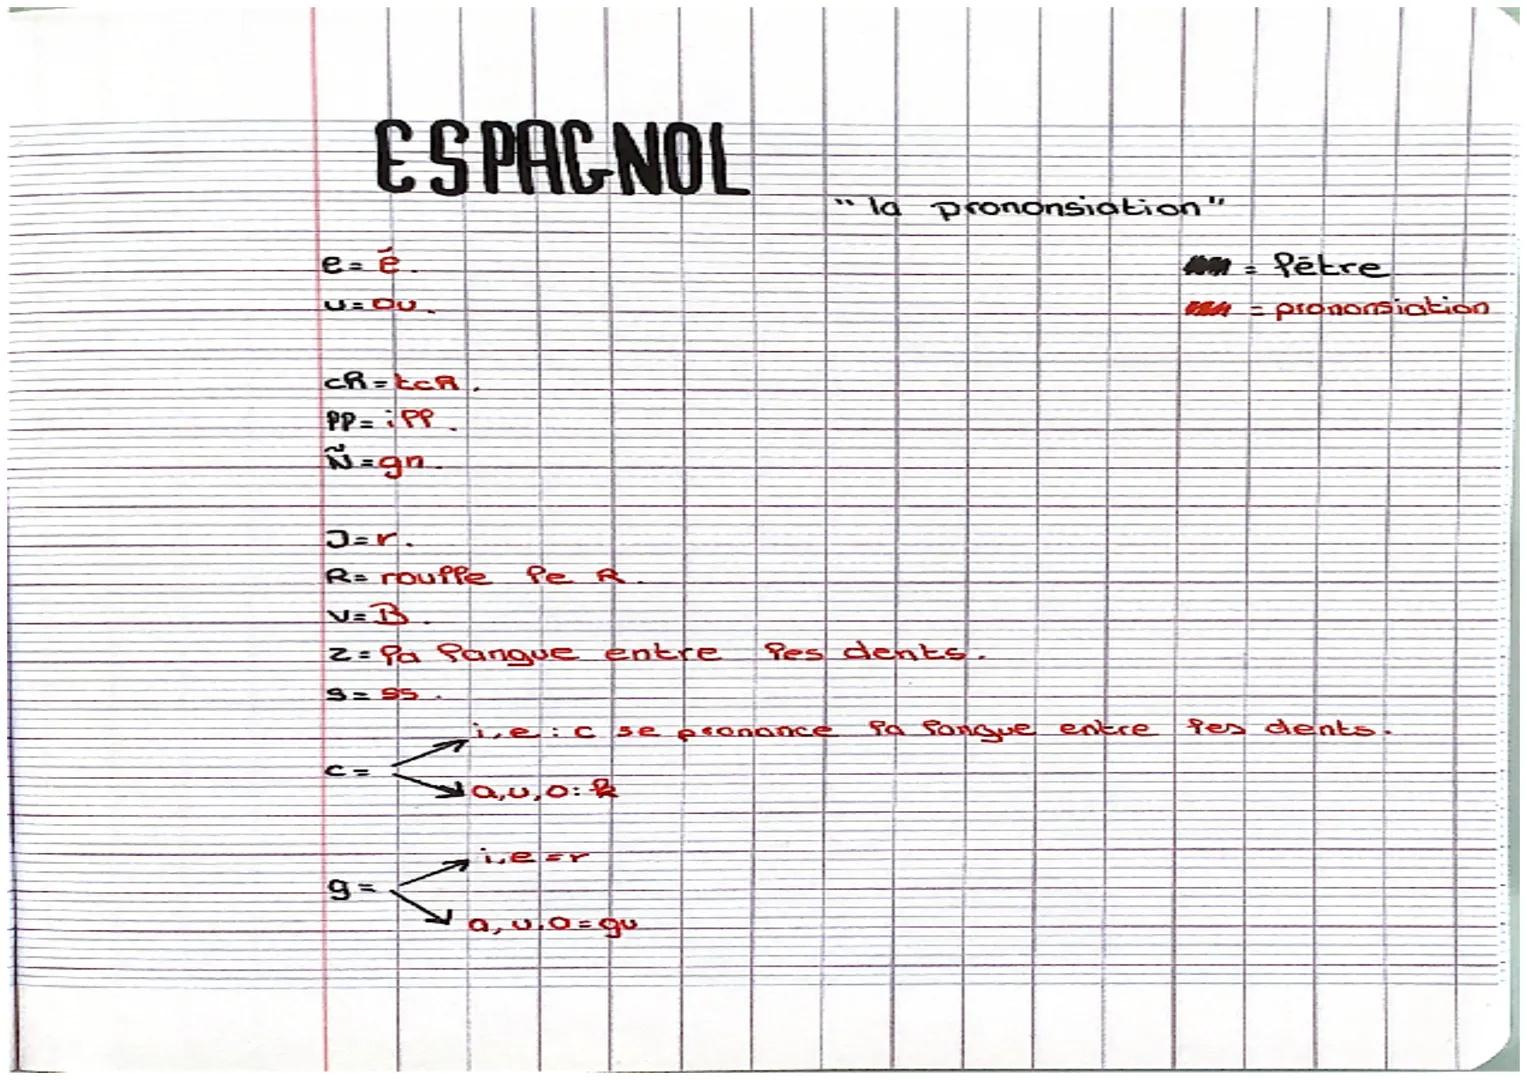 ESPAGNOL
"la prononsiation"
e = é.
= létre
u = ou.
= prononsiation
ch = tch.
ll = ill.
Ñ = gn.
J = r.
R = roulle le R.
V = B.
z = la langue entre les dents.
s = ss.
i, e : c se prononce la langue entre les dents.
c =
a, u, o : k
i, e = r
g =
a, u, o = gu